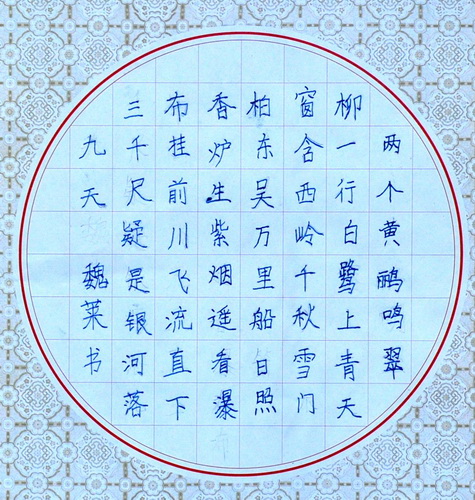 两个黄鹂鸣翠
柳一行白鹭上青天
窗含西岭千秋雪门
柏东吴万里船日照
香炉生紫烟遥看瀑
布挂前川飞流直下
三千尺疑是银河落
九天 魏莱书